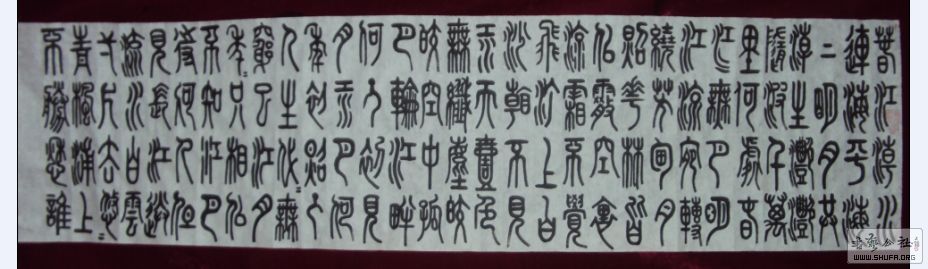 春江潮水
連海平海
上明月共
潮生灩灩
隨波千萬
里何處春
江無月明
江流宛轉
繞芳甸月
照花林皆
似霰空裏
流霜不覺
飛汀上白
沙看不見
江天壹色
無纖塵皎
皎空中孤
月輪江畔
何人初見
月江月何
年初照人
人生代=無
窮已江月
年=只相似
不知江月
待何人但
見長江送
流水白雲
一片去悠=
青楓浦上
不勝愁誰
書法公社
WWW.SHUFA.ORG